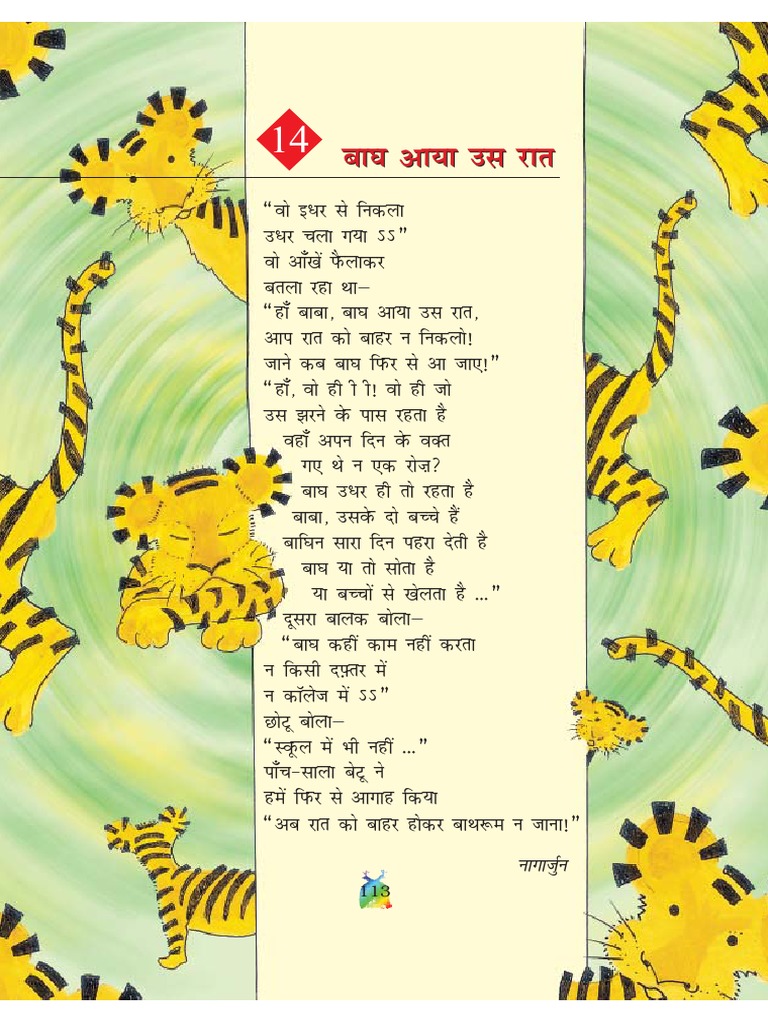 14
बाघ आया उस रात
“वो इधर से निकला
उधर चला गया ऽऽ”
वो आँखें फैलाकर
बतला रहा था–
“हाँ बाबा, बाघ आया उस रात,
आप रात को बाहर न निकलो!
जाने कब बाघ फिर से आ जाए!”
“हाँ, वो ही ी ी! वो ही जो
उस झरने के पास रहता है
वहाँ अपन दिन के वक्त
गए थे न एक रोज़?
बाघ उधर ही तो रहता है
बाबा, उसके दो बच्चे हैं
बाघिन सारा दिन पहरा देती है
बाघ या तो सोता है
या बच्चों से खेलता है ...”
दूसरा बालक बोला–
“बाघ कहीं काम नहीं करता
न किसी दफ़्तर में
न कॉलेज में ऽऽ”
छोटू बोला–
“स्कूल में भी नहीं ...”
पाँच-साला बेटू ने
हमें फिर से आगाह किया
“अब रात को बाहर होकर बाथरूम न जाना!”
नागार्जुन
113